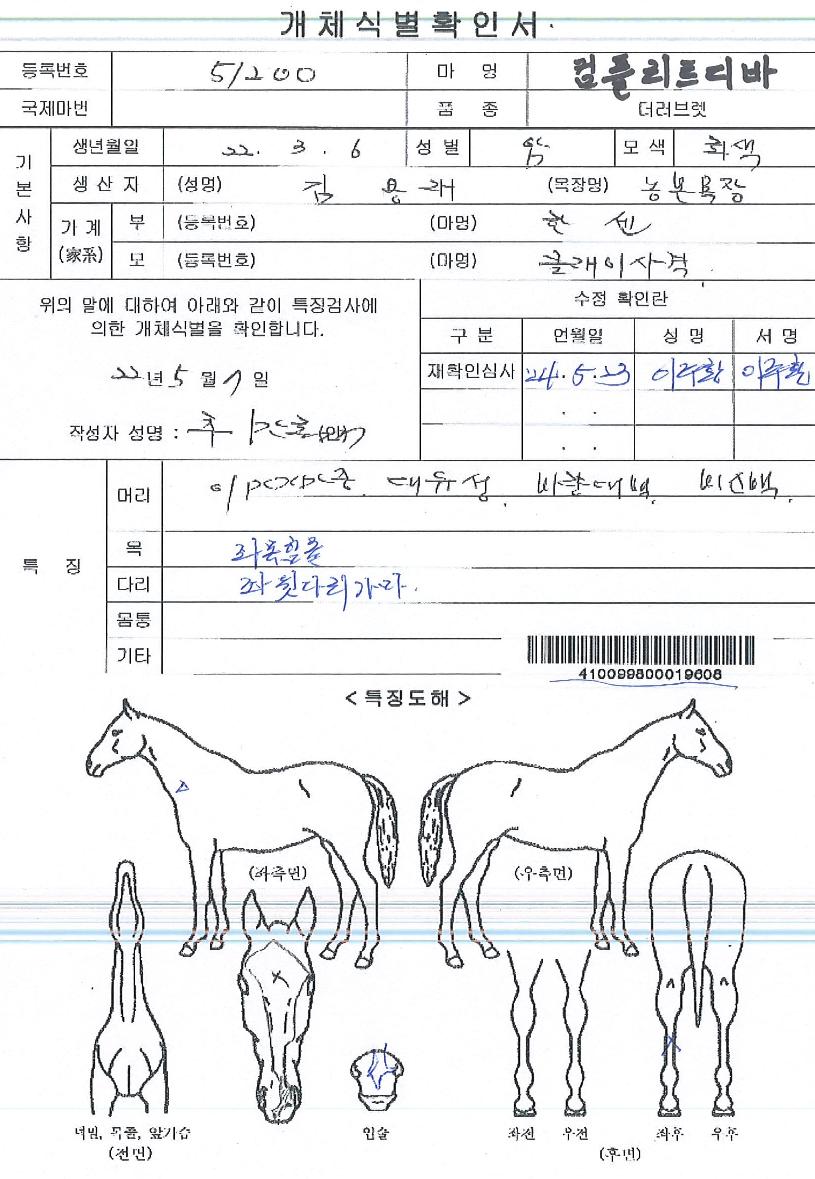 개체식별확인서
등록번호 51200 마 명 컴플리트디바
국제마번 품 종 더러브렛
기본사항
생년월일 22. 3. 6 성 별 암 모 색 회색
생 산 지 (성명) 김 용 래 (목장명) 농본목장
가 계 (家系) 부 (등록번호) (마명) 한 센
모 (등록번호) (마명) 클래이사격
위의 말에 대하여 아래와 같이 특징검사에
의한 개체식별을 확인합니다.
22년 5 월 7 일
작성자 성명 :
수정 확인란
구 분 언월일 성 명 서 명
재확인심사 24. 5. 23 이주환 이주환
. .
. .
특 징
머리 대유성. 비인백.
목 좌측힘줄
다리 좌뒷다리가마.
몸통
기타
410099800019608
<특징도해>
(좌측면) (우측면)
너밈, 목줄, 앞가슴 입술 좌전 우전 좌후 우후
(전면) (후면)